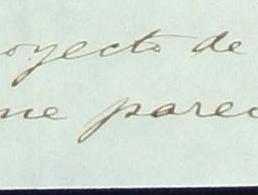 royecto de
me parec